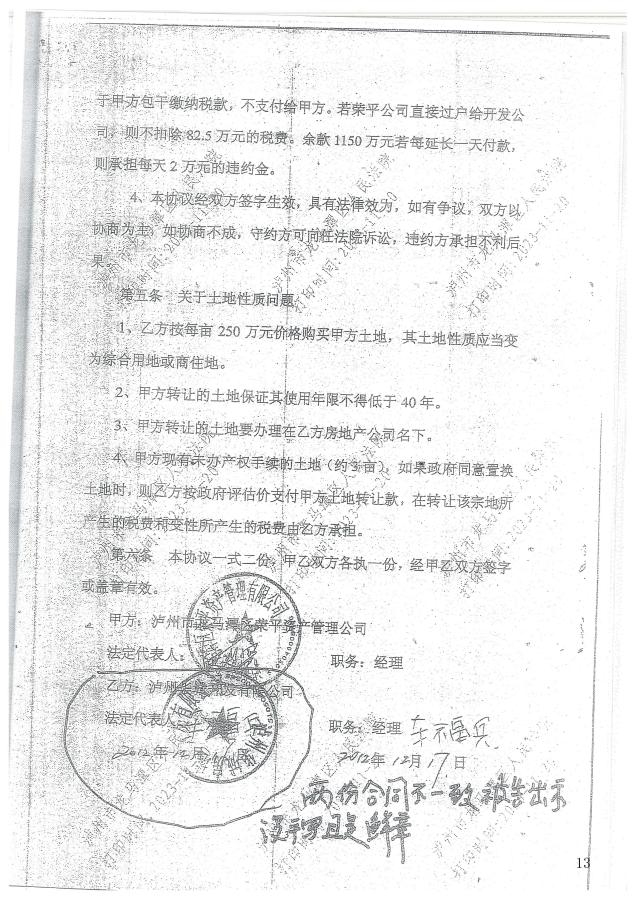 于甲方包干缴纳税款，不支付给甲方。若荣平公司直接过户给开发公
司，则不扣除 82.5 万元的税费。余款 1150 万元若每延长一天付款，
则承担每天 2 万元的违约金。
4、本协议经双方签字生效，具有法律效为，如有争议，双方以
协商为主，如协商不成，守约方可向任法院诉讼，违约方承担不利后
果。
第五条 关于土地性质问题
1、乙方按每亩 250 万元价格购买甲方土地，其土地性质应当变
为综合用地或商住地。
2、甲方转让的土地保证其使用年限不得低于 40 年。
3、甲方转让的土地要办理在乙方房地产公司名下。
4、甲方现有未办产权手续的土地（约 3 亩），如果政府同意置换
土地时，则乙方按政府评估价支付甲方土地转让款，在转让该宗地所
产生的税费和变性所产生的税费由乙方承担。
第六条 本协议一式二份，甲乙双方各执一份，经甲乙双方签字
或盖章有效。
甲方：泸州市龙马潭区荣平资产管理公司
法定代表人： 职务：经理
乙方：泸州 开发有限公司
法定代表人 职务：经理
2012年12月17日 2012年12月17日
两份合同不一致 被告出示
没 且是鲜章
泸州市龙马潭区人民法院
打印时间：2023-11-20
13